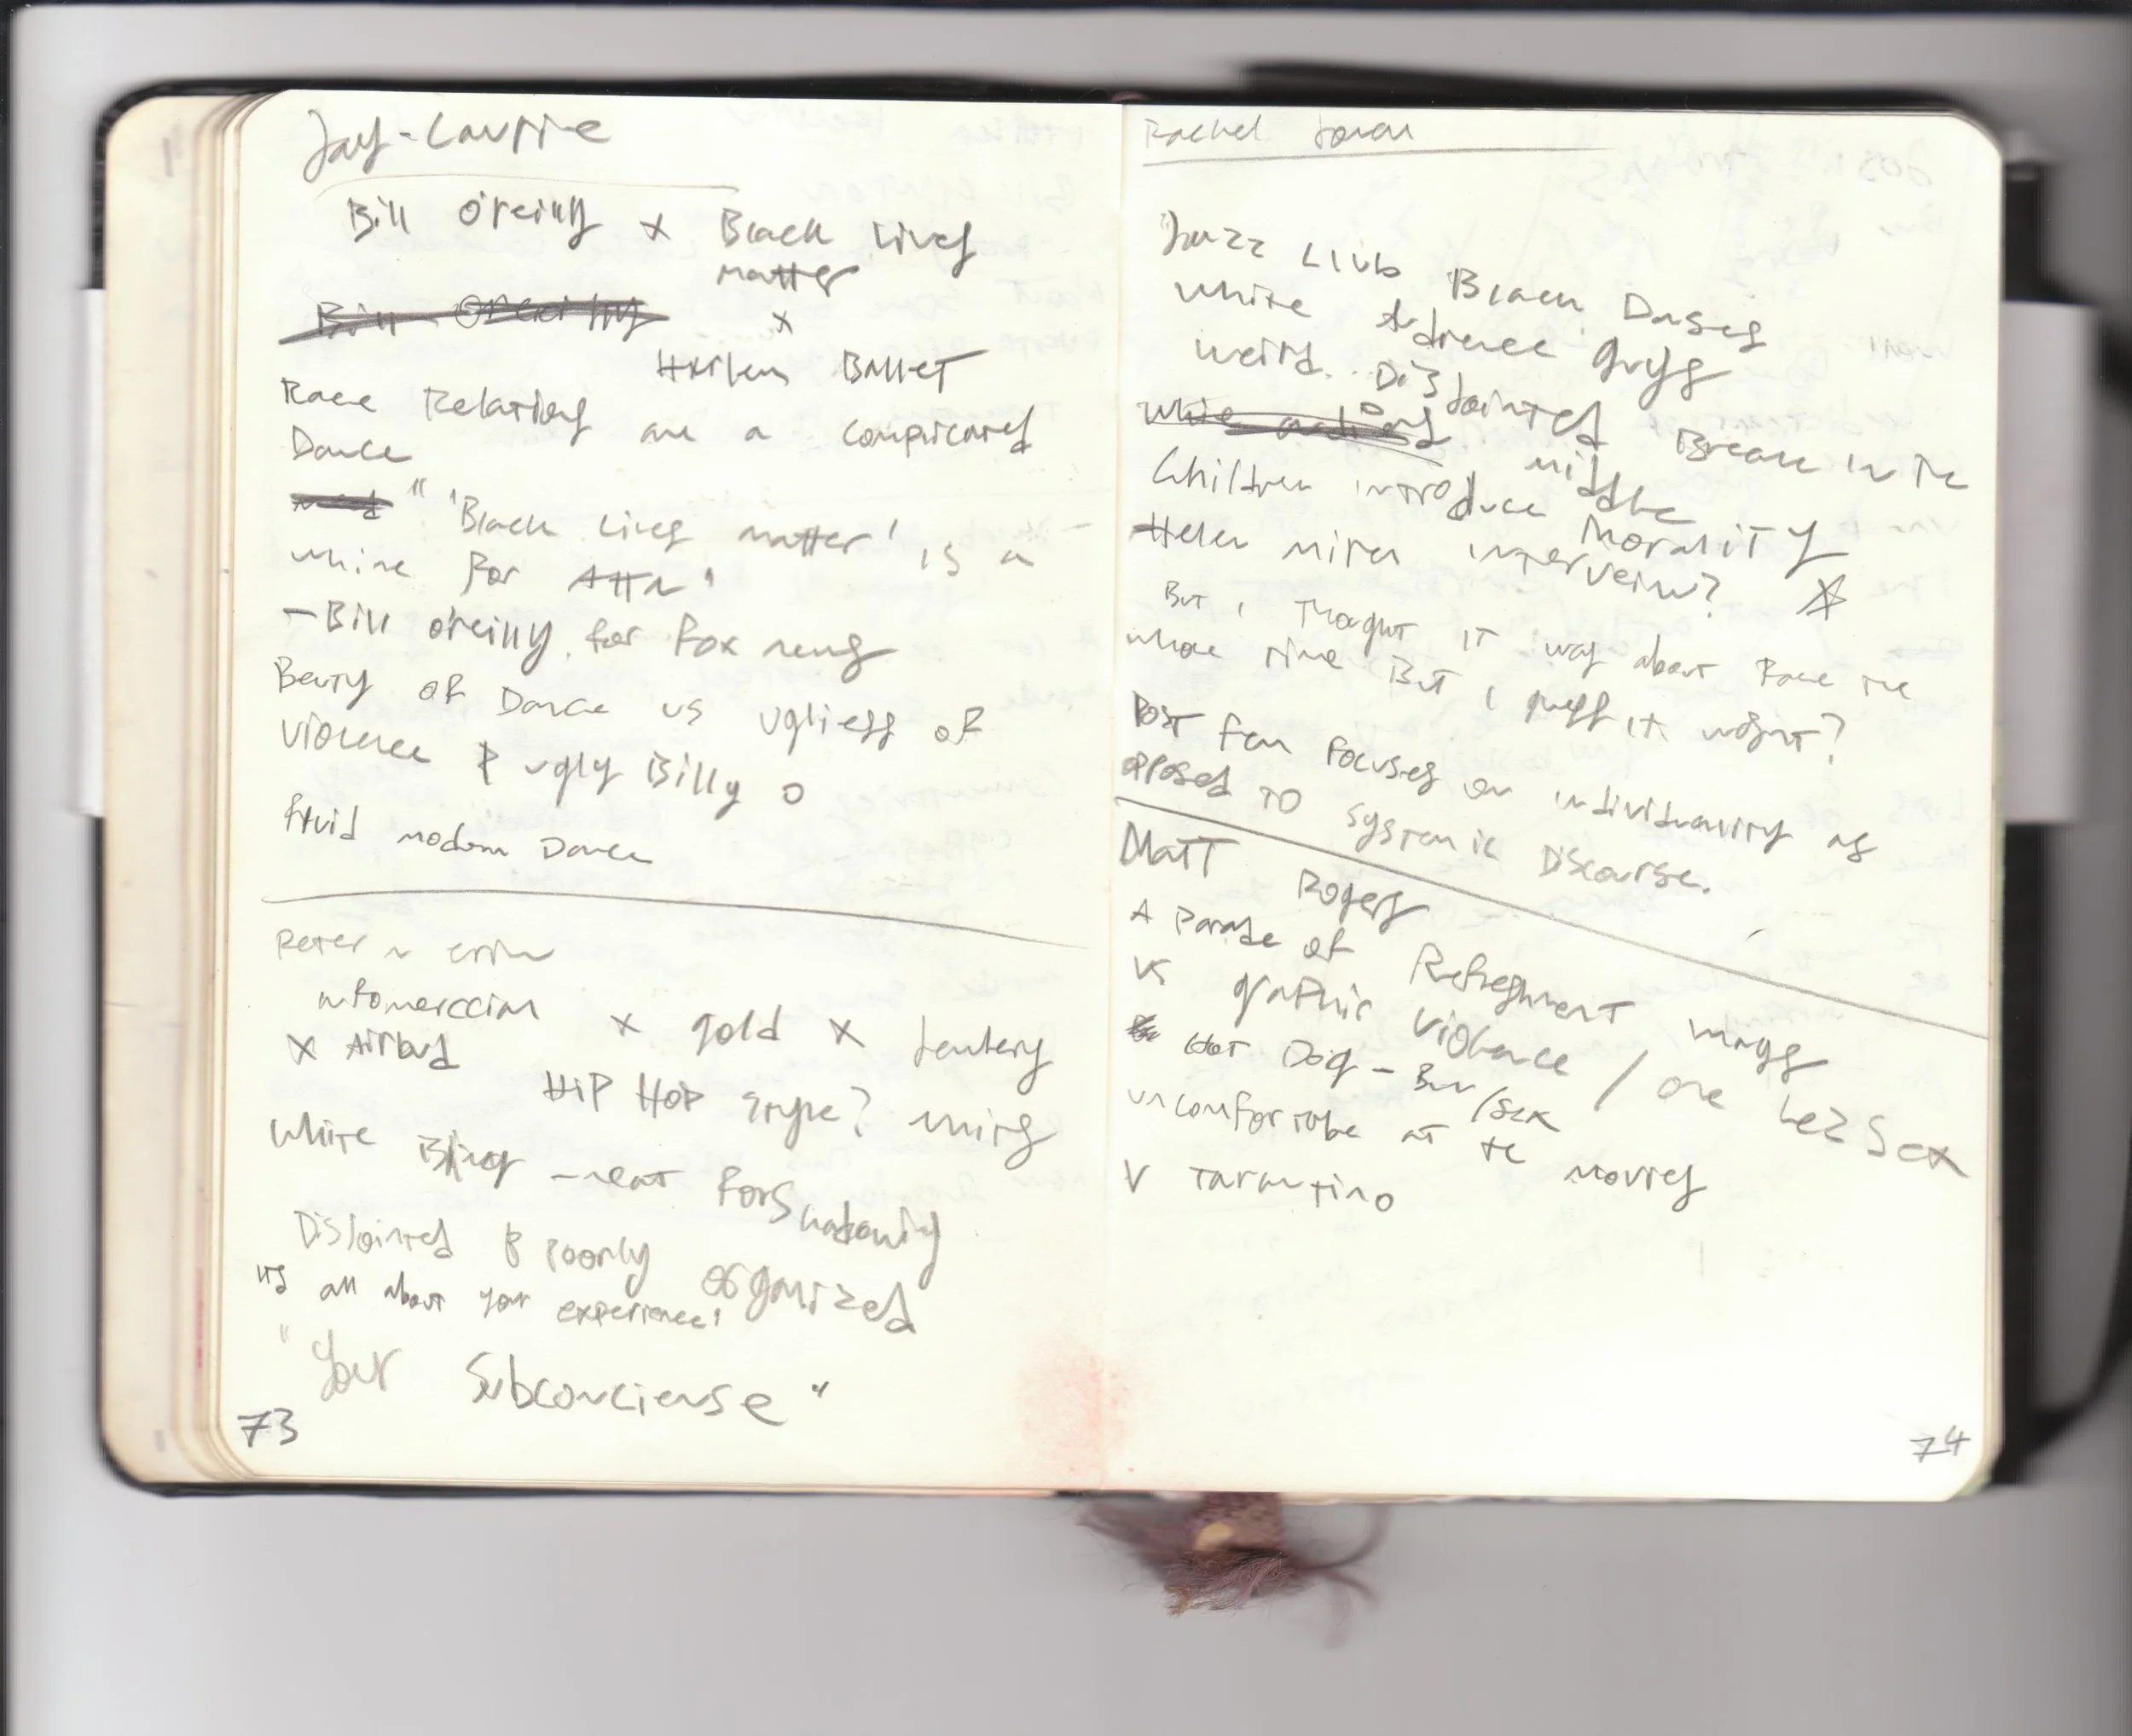 Jay-Laurie
Bill O'reilly x Black Lives
matter
Bill Oreilly x
Harlem Ballet
Race Relations are a complicated
Dance
" 'Black Lives matter' is a
whine for Attn'
- Bill O'reilly for fox news
Beauty of Dance vs ugliess of
violence & ugly Billy O
fluid modern Dance
Peter n erin
infomerccial x gold x
x Airbud
Hip Hop style? mixing
White Bling - neat
Disjointed & poorly organized
its all about your experience!
"Your Subconciense"
73
Rachel
Jazz Club Black Dasies
white Adience guys
weird. Disjointed Break in the
middle
Children introduce Morality
Helen miren interveiw?
But i thought it was about Race the
whole time But i guess it wasnt?
Post fem focuses on individuality as
opposed to systemic Discourse.
Matt Rogers
A Parade of Refreshment
vs grafhic violence / one Lez Sex
Hot Dog - Bun/Sex
uncomfortabe at te movies
V Tarantino
74